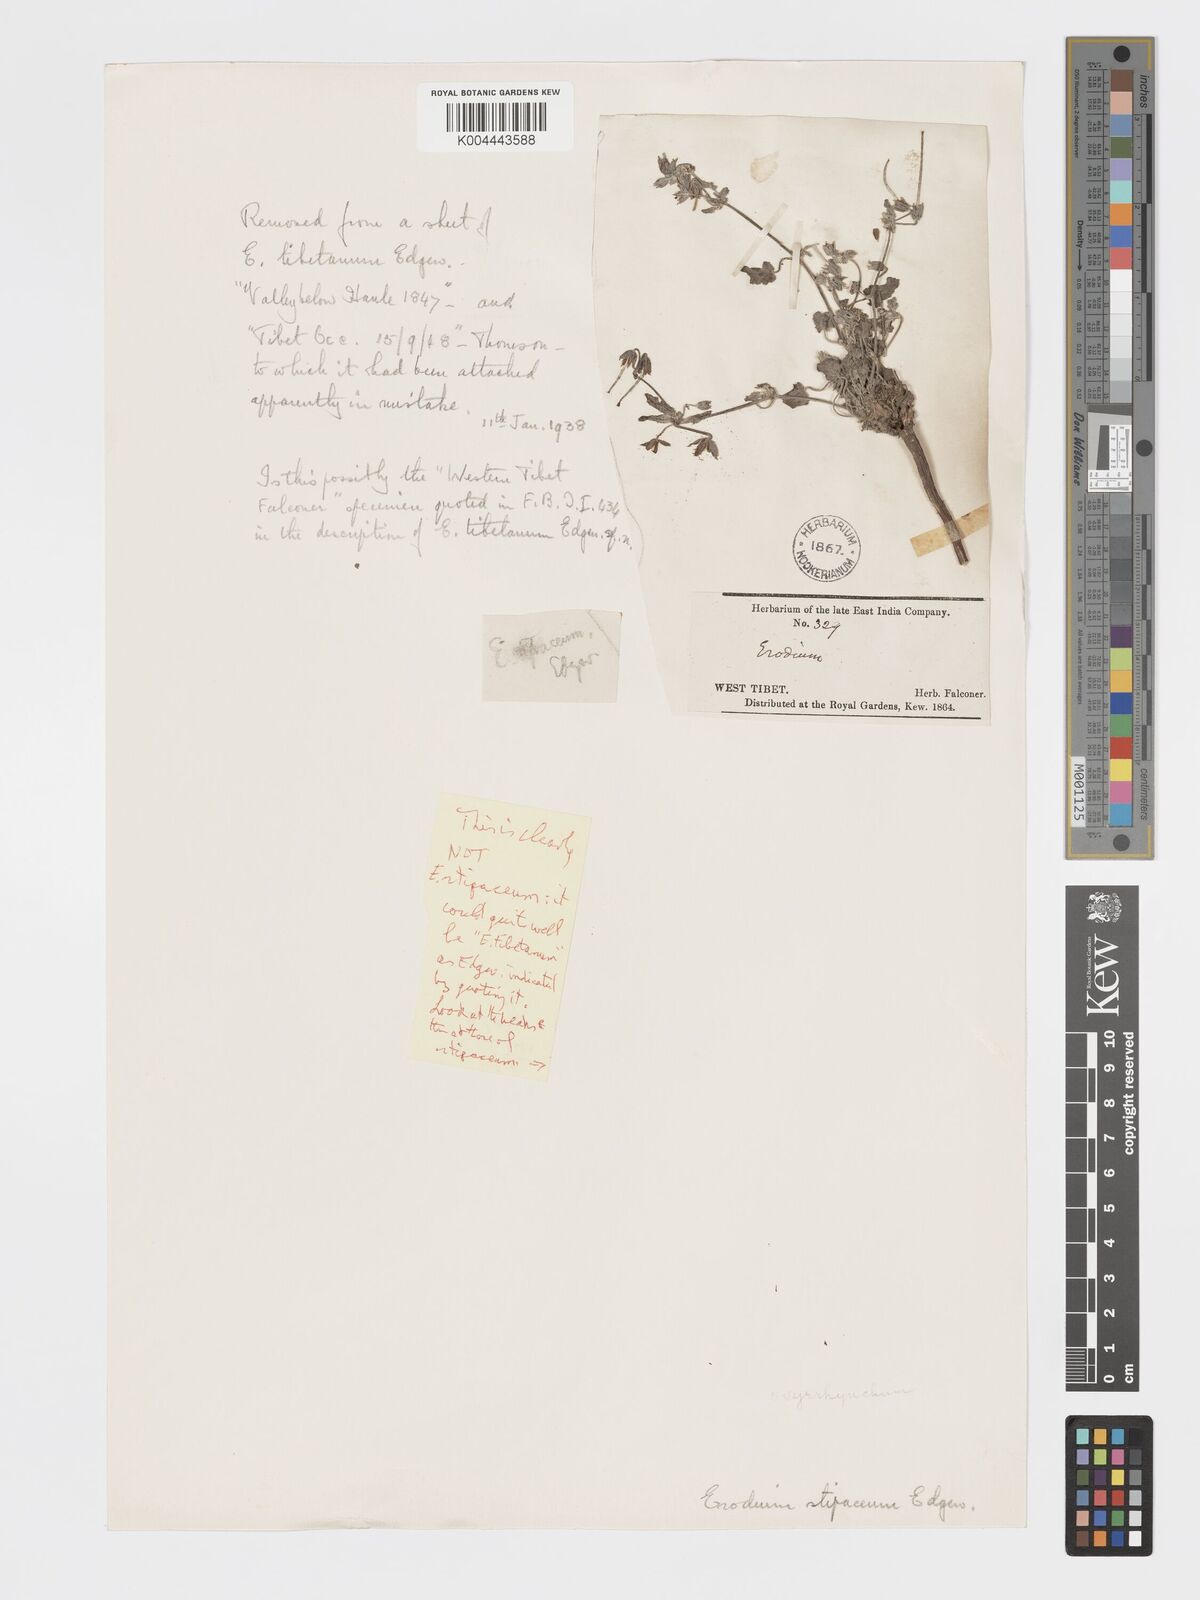 ROYAL BOTANIC GARDENS KEW
K004443588
Removed from a sheet of
E. tibetanum Edgew.
"Valley below Hanle 1847" – and
"Tibet Occ. 15/9/48" – Thomson –
to which it had been attached
apparently in mistake.
11th Jan. 1938
Is this possibly the "Western Tibet
Falconer" specimen quoted in F.B.I. I. 434
in the description of E. tibetanum Edgew. sp. n.
HERBARIUM
1867.
HOOKERIANUM
Herbarium of the late East India Company.
No. 329
Erodium
WEST TIBET. Herb. Falconer.
Distributed at the Royal Gardens, Kew. 1864.
E. stipaceum,
Edgew
This is clearly
NOT
E. stipaceum: it
could quite well
be "E. tibetanum"
as Edgew. indicated
by quoting it.
Look at the beaks &
then at those of
stipaceum →
oxyrrhynchum
Erodium stipaceum Edgew.
inches
centimetres
Density
Don Williams
M001125
Royal Botanic Gardens
Kew
0 1 2 3 4 5 6 7 8 9 10
cm
copyright reserved